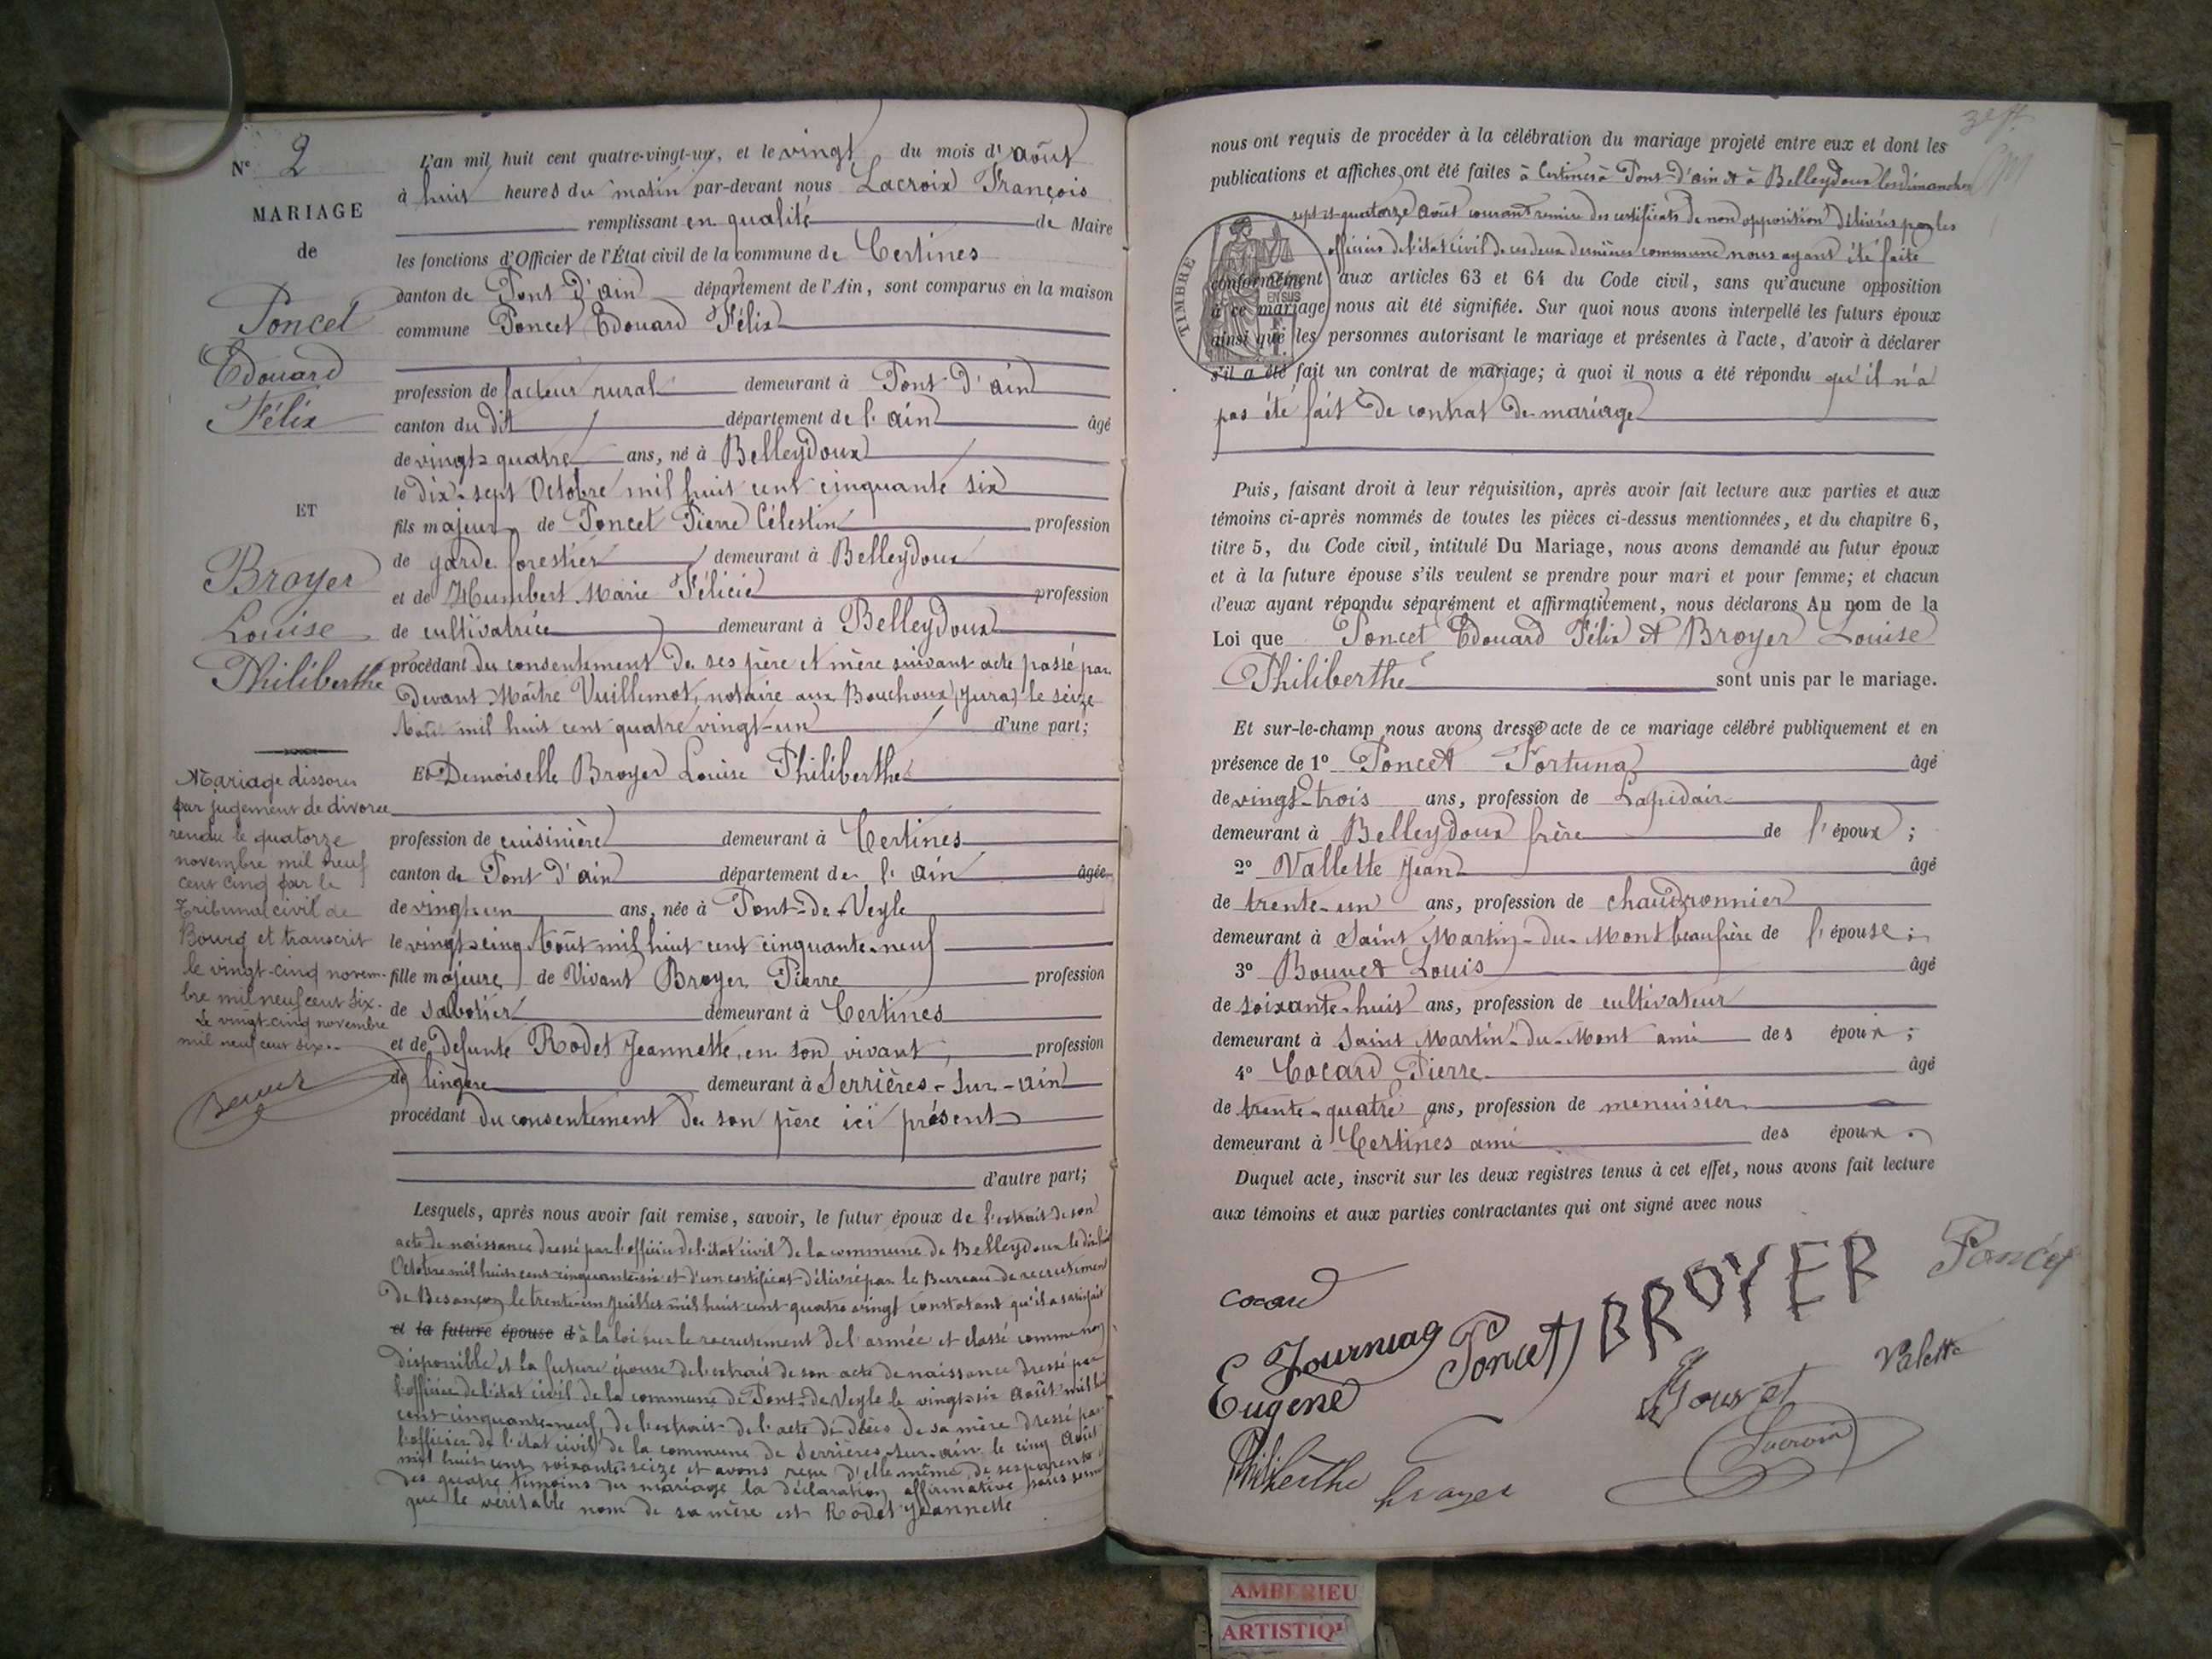 N° 2
MARIAGE
de
Poncet
Edouard
Félix
ET
Broyer
Louise
Philiberthe
Mariage dissous
par jugement de divorce
rendu le quatorze
novembre mil neuf
cent cinq par le
Tribunal civil de
Bourg et transcrit
le vingt-cinq novem-
bre mil neuf cent six.
Le vingt-cinq novembre
mil neuf cent six.-
L'an mil huit cent quatre-vingt-un, et le vingt du mois d'août
à huit heures du matin par-devant nous Lacroix François
remplissant en qualité de Maire
les fonctions d'Officier de l'État civil de la commune de Certines
canton de Pont d'ain département de l'Ain, sont comparus en la maison
commune Poncet Edouard Félix
profession de facteur rural demeurant à Pont d'ain
canton du dit département de l'ain âgé
de vingt-quatre ans, né à Belleydoux
le dix-sept Octobre mil huit cent cinquante six
fils majeur de Poncet Pierre Célestin profession
de garde forestier demeurant à Belleydoux
et de Humbert Marie Félicie profession
de cultivatrice demeurant à Belleydoux
procédant du consentement de ses père et mère suivant acte passé par
devant Maître Vuillemot, notaire aux Bouchoux (Jura) le seize
Août mil huit cent quatre vingt-un d'une part;
Et Demoiselle Broyer Louise Philiberthe
profession de cuisinière demeurant à Certines
canton de Pont d'ain département de l'ain âgée
de vingt un ans, née à Pont-de-Veyle
le vingt-cinq Août mil huit cent cinquante-neuf
fille majeure de Vivant Broyer Pierre profession
de sabotier demeurant à Certines
et de defunte Rodet Jeannette, en son vivant, profession
de lingère demeurant à Serrières-sur-ain
procédant du consentement de son père ici présent
d'autre part;
Lesquels, après nous avoir fait remise, savoir, le futur époux de l'extrait de son
acte de naissance dressé par l'officier de l'état civil de la commune de Belleydoux le dix huit
Octobre mil huit cent cinquante six et d'un certificat délivré par le Bureau de recrutement
de Besançon le trente-un juillet mil huit cent quatre vingt constatant qu'il a satisfait
et la future épouse d à la loi sur le recrutement de l'armée et classé comme non
disponible et la future épouse de l'extrait de son acte de naissance dressé par
l'officier de l'état civil de la commune de Pont-de-Veyle le vingt-six Août mil huit
cent cinquante-neuf, de l'extrait de l'acte de décès de sa mère dressé par
l'officier de l'état civil de la commune de Serrières-sur-ain le cinq Août
mil huit cent soixante-seize et avons reçu d'elle même, de ses parents
des quatre témoins du mariage la déclaration affirmative sous serment
que le véritable nom de sa mère est Rodet Jeannette
nous ont requis de procéder à la célébration du mariage projeté entre eux et dont les
publications et affiches ont été faites à Certines à Pont-d'ain et à Belleydoux les dimanches
sept et quatorze août courant remise des certificats de non opposition délivrés par les
officiers de l'état civil de ces deux dernières commune nous ayant été faite
TIMBRE
EN SUS
conformément aux articles 63 et 64 du Code civil, sans qu'aucune opposition
à ce mariage nous ait été signifiée. Sur quoi nous avons interpellé les futurs époux
ainsi que les personnes autorisant le mariage et présentes à l'acte, d'avoir à déclarer
s'il a été fait un contrat de mariage; à quoi il nous a été répondu qu'il n'a
pas été fait de contrat de mariage
Puis, faisant droit à leur réquisition, après avoir fait lecture aux parties et aux
témoins ci-après nommés de toutes les pièces ci-dessus mentionnées, et du chapitre 6,
titre 5, du Code civil, intitulé Du Mariage, nous avons demandé au futur époux
et à la future épouse s'ils veulent se prendre pour mari et pour femme; et chacun
d'eux ayant répondu séparément et affirmativement, nous déclarons Au nom de la
Loi que Poncet Edouard Félix et Broyer Louise
Philiberthe sont unis par le mariage.
Et sur-le-champ nous avons dressé acte de ce mariage célébré publiquement et en
présence de 1° Poncet Fortuna âgé
de vingt-trois ans, profession de Lapidair
demeurant à Belleydoux frère de l'époux;
2° Vallette Jean âgé
de trente-un ans, profession de chaudronnier
demeurant à Saint Martin-du-Mont beaufrère de l'épouse;
3° Bouvet Louis âgé
de soixante-huit ans, profession de cultivateur
demeurant à Saint Martin-du-Mont ami des époux;
4° Cocard Pierre âgé
de trente-quatre ans, profession de menuisier
demeurant à Certines ami des époux.
Duquel acte, inscrit sur les deux registres tenus à cet effet, nous avons fait lecture
aux témoins et aux parties contractantes qui ont signé avec nous
cocard
Poncet
BROYER
Poncet
E Journiag
Eugene
Bouvet
Valette
Philiberthe broyer
Lacroix
AMBERIEU
ARTISTIQ